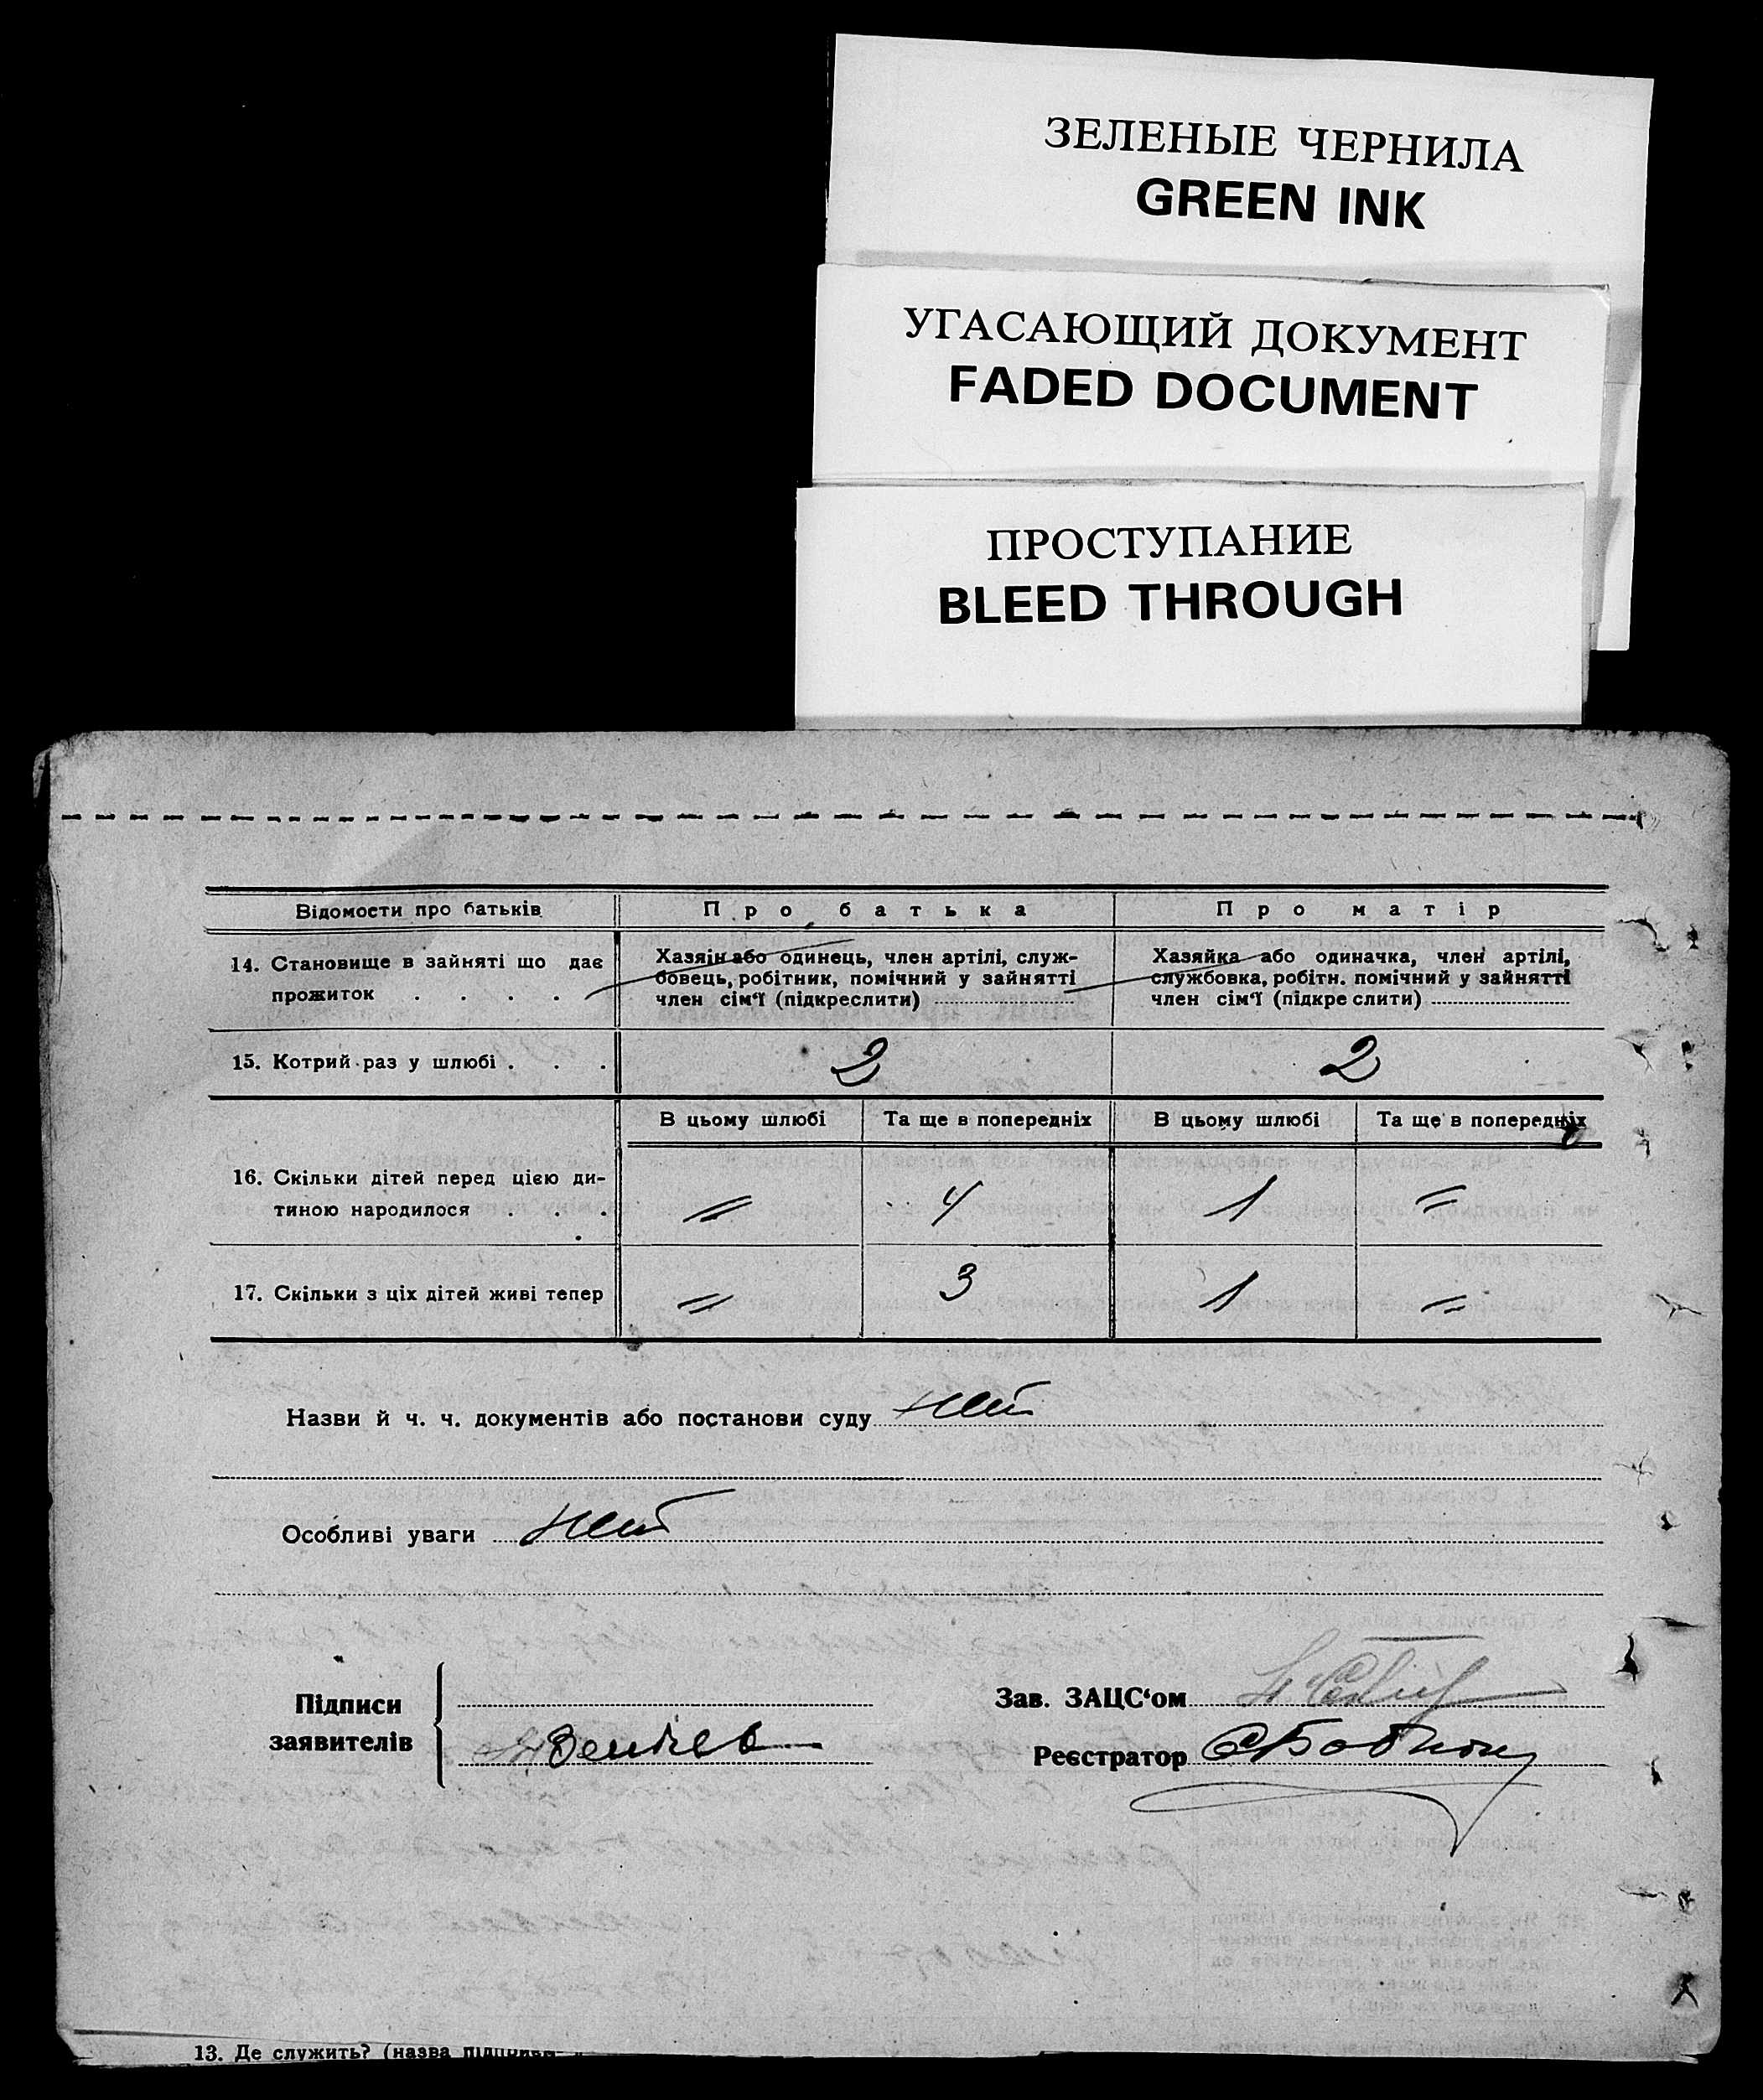 ЗЕЛЕНЫЕ ЧЕРНИЛА
GREEN INK
УГАСАЮЩИЙ ДОКУМЕНТ
FADED DOCUMENT
ПРОСТУПАНИЕ
BLEED THROUGH
Відомости про батьків Про батька Про матір
14. Становище в зайняті що дає прожиток . . . .
Хазяін або одинець, член артілі, служ-
бовець, робітник, помічний у зайнятті
член сім'ї (підкреслити)
Хазяйка або одиначка, член артілі,
службовка, робітн. помічний у зайнятті
член сім'ї (підкре слити)
15. Котрий раз у шлюбі . . . 2 2
В цьому шлюбі Та ще в попередніх В цьому шлюбі Та ще в попередніх
16. Скільки дітей перед цією ди-
тиною народилося . . . = 4 1 =
17. Скільки з ціх дітей живі тепер = 3 1 =
Назви й ч. ч. документів або постанови суду нет
Особливі уваги нет
Підписи
заявителів
Зав. ЗАЦС'ом
Реєстратор
13. Де служить? (назва підприєм-